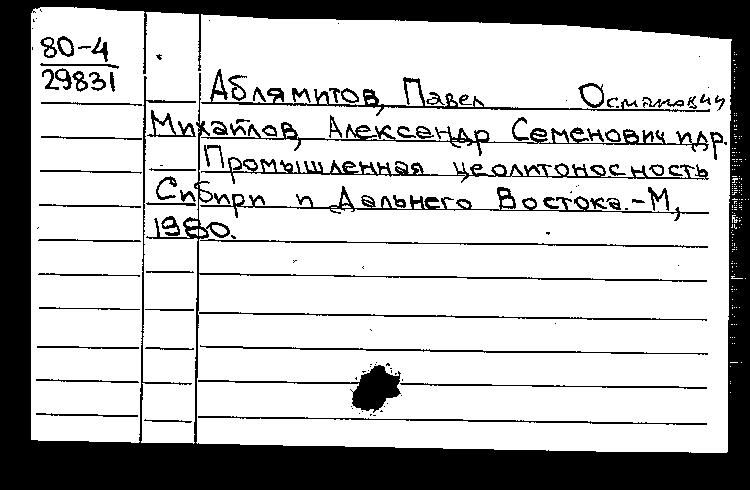 80-4
29831
Аблямитов, Павел Османович
Михайлов, Александр Семенович и др.
Промышленная цеолитоносность
Сибири и Дальнего Востока.-М,
1980.